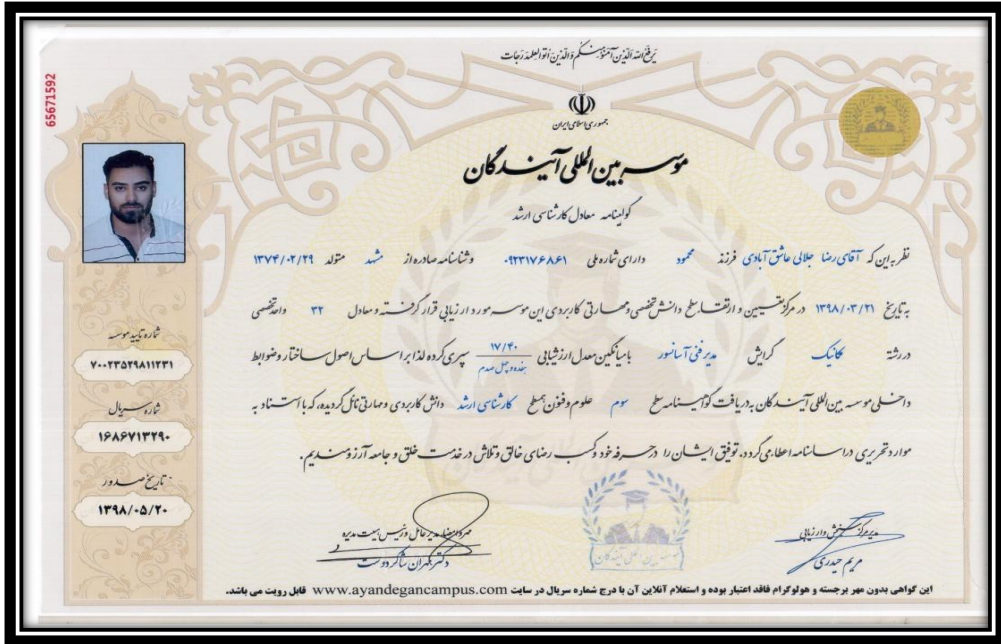 یرفع الله الذین آمنوا منکم والذین اوتوا العلم درجات
65671592
جمهوری اسلامی ایران
موسسه بین المللی آیندگان
گواهینامه معادل کارشناسی ارشد
نظر به این که آقای رضا جلالی عاشق آبادی فرزند محمود دارای شماره ملی ۰۹۲۳۱۷۶۸۶۱ و شناسنامه صادره از مشهد متولد ۱۳۷۴/۰۲/۲۹
به تاریخ ۱۳۹۸/۰۳/۲۱ در مرکز تعیین و ارتقا سطح دانش تخصصی و مهارتی کاربردی این موسسه مورد ارزیابی قرار گرفته و معادل ۳۲ واحد تخصصی
در رشته مکانیک گرایش مدیر فنی آسانسور با میانگین معدل ارزشیابی ۱۷/۴۰ هفده و چهل صدم سپری کرده لذا بر اساس اصول ساختار و ضوابط
داخلی موسسه بین المللی آیندگان به دریافت گواهینامه سطح سوم علوم و فنون همسطح کارشناسی ارشد دانش کاربردی و مهارتی نائل گردیده، که با استناد به
موارد تحریری در اساسنامه اعطا می گردد، توفیق ایشان را در حرفه خود و کسب رضای خالق و تلاش در خدمت خلق و جامعه آرزومندیم.
شماره تایید موسسه
۷۰۰۲۳۵۲۹۸۱۱۲۳۱
شماره سریال
۱۶۸۶۷۱۳۲۹۰
تاریخ صدور
۱۳۹۸/۰۵/۲۰
مدیر مرکز سنجش و ارزیابی
مریم حیدری
مدیر عامل و رئیس هیئت مدیره
دکتر مهران شاکر دوست
موسسه بین المللی آیندگان
این گواهی بدون مهر برجسته و هولوگرام فاقد اعتبار بوده و استعلام آنلاین آن با درج شماره سریال در سایت www.ayandegancampus.com قابل رویت می باشد.